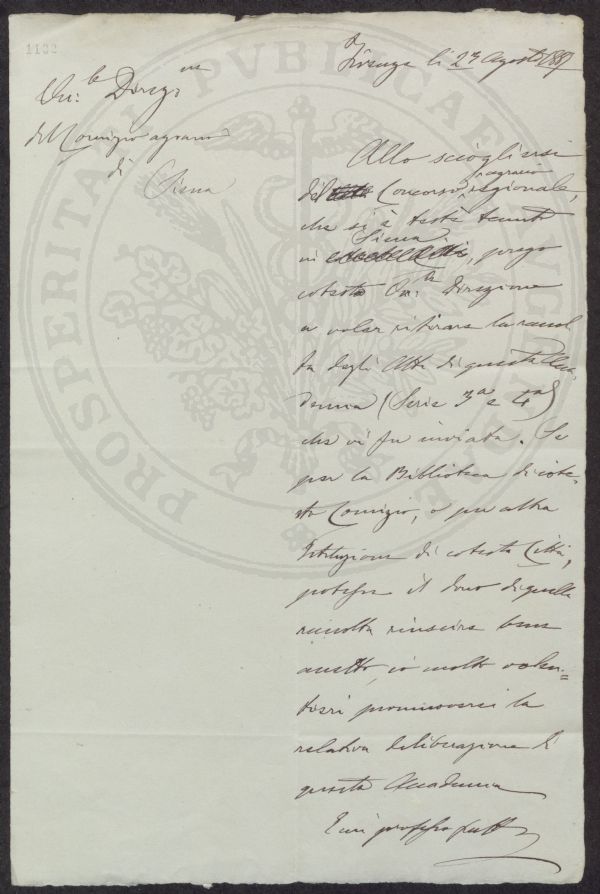 1132
Firenze li 2 Agosto 1887
On: le Direz: ne
del Comizio agrario
di
Siena
Allo sciogliersi
del Concorso agrario regionale,
che si è testè tenuto
in Siena, prego
cotesta On: le Direzione
a voler ritirare la raccol
ta degli Atti di questa Acca
demia (Serie 3a e 4a)
che vi fu inviata. Se
per la Biblioteca di cote
sto Comizio, o per altra
Istituzione di cotesta Città,
potesse il dono di quella
raccolta riuscire bene
accetto, io molto volen=
tieri promuoverei la
relativa deliberazione di
questa Accademia
E mi professo
PROSPERITATI PVBLICAE AVGENDAE